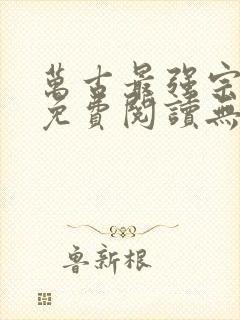 萬古最強宗
免費閱讀無
魯新根